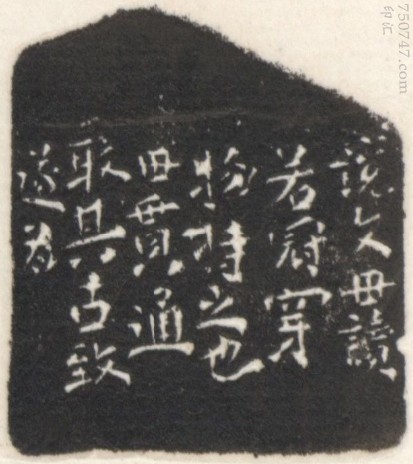 說文毌讀
若冠穿
物持之也
毌貫通
取其古致
遂為
750747.com
印汇